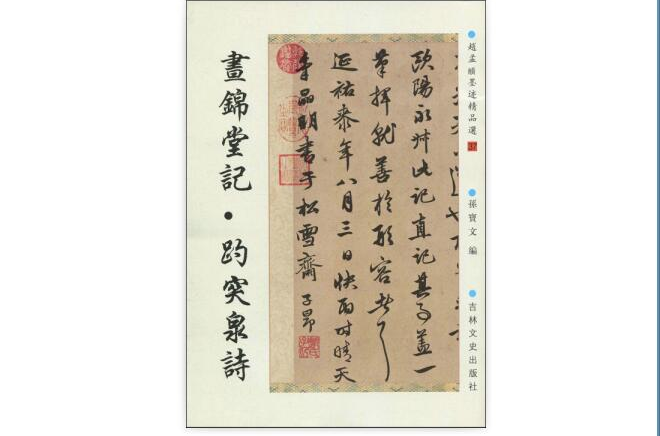 趙孟頫墨迹精品選
孫寶文 編
吉林文史出版社
歐陽永叔此記直記其事蓋一
筆揮就善於形容者
延祐柒年八月三日快雨時晴天
書于松雪齋 子昂
晝錦堂記·趵突泉詩